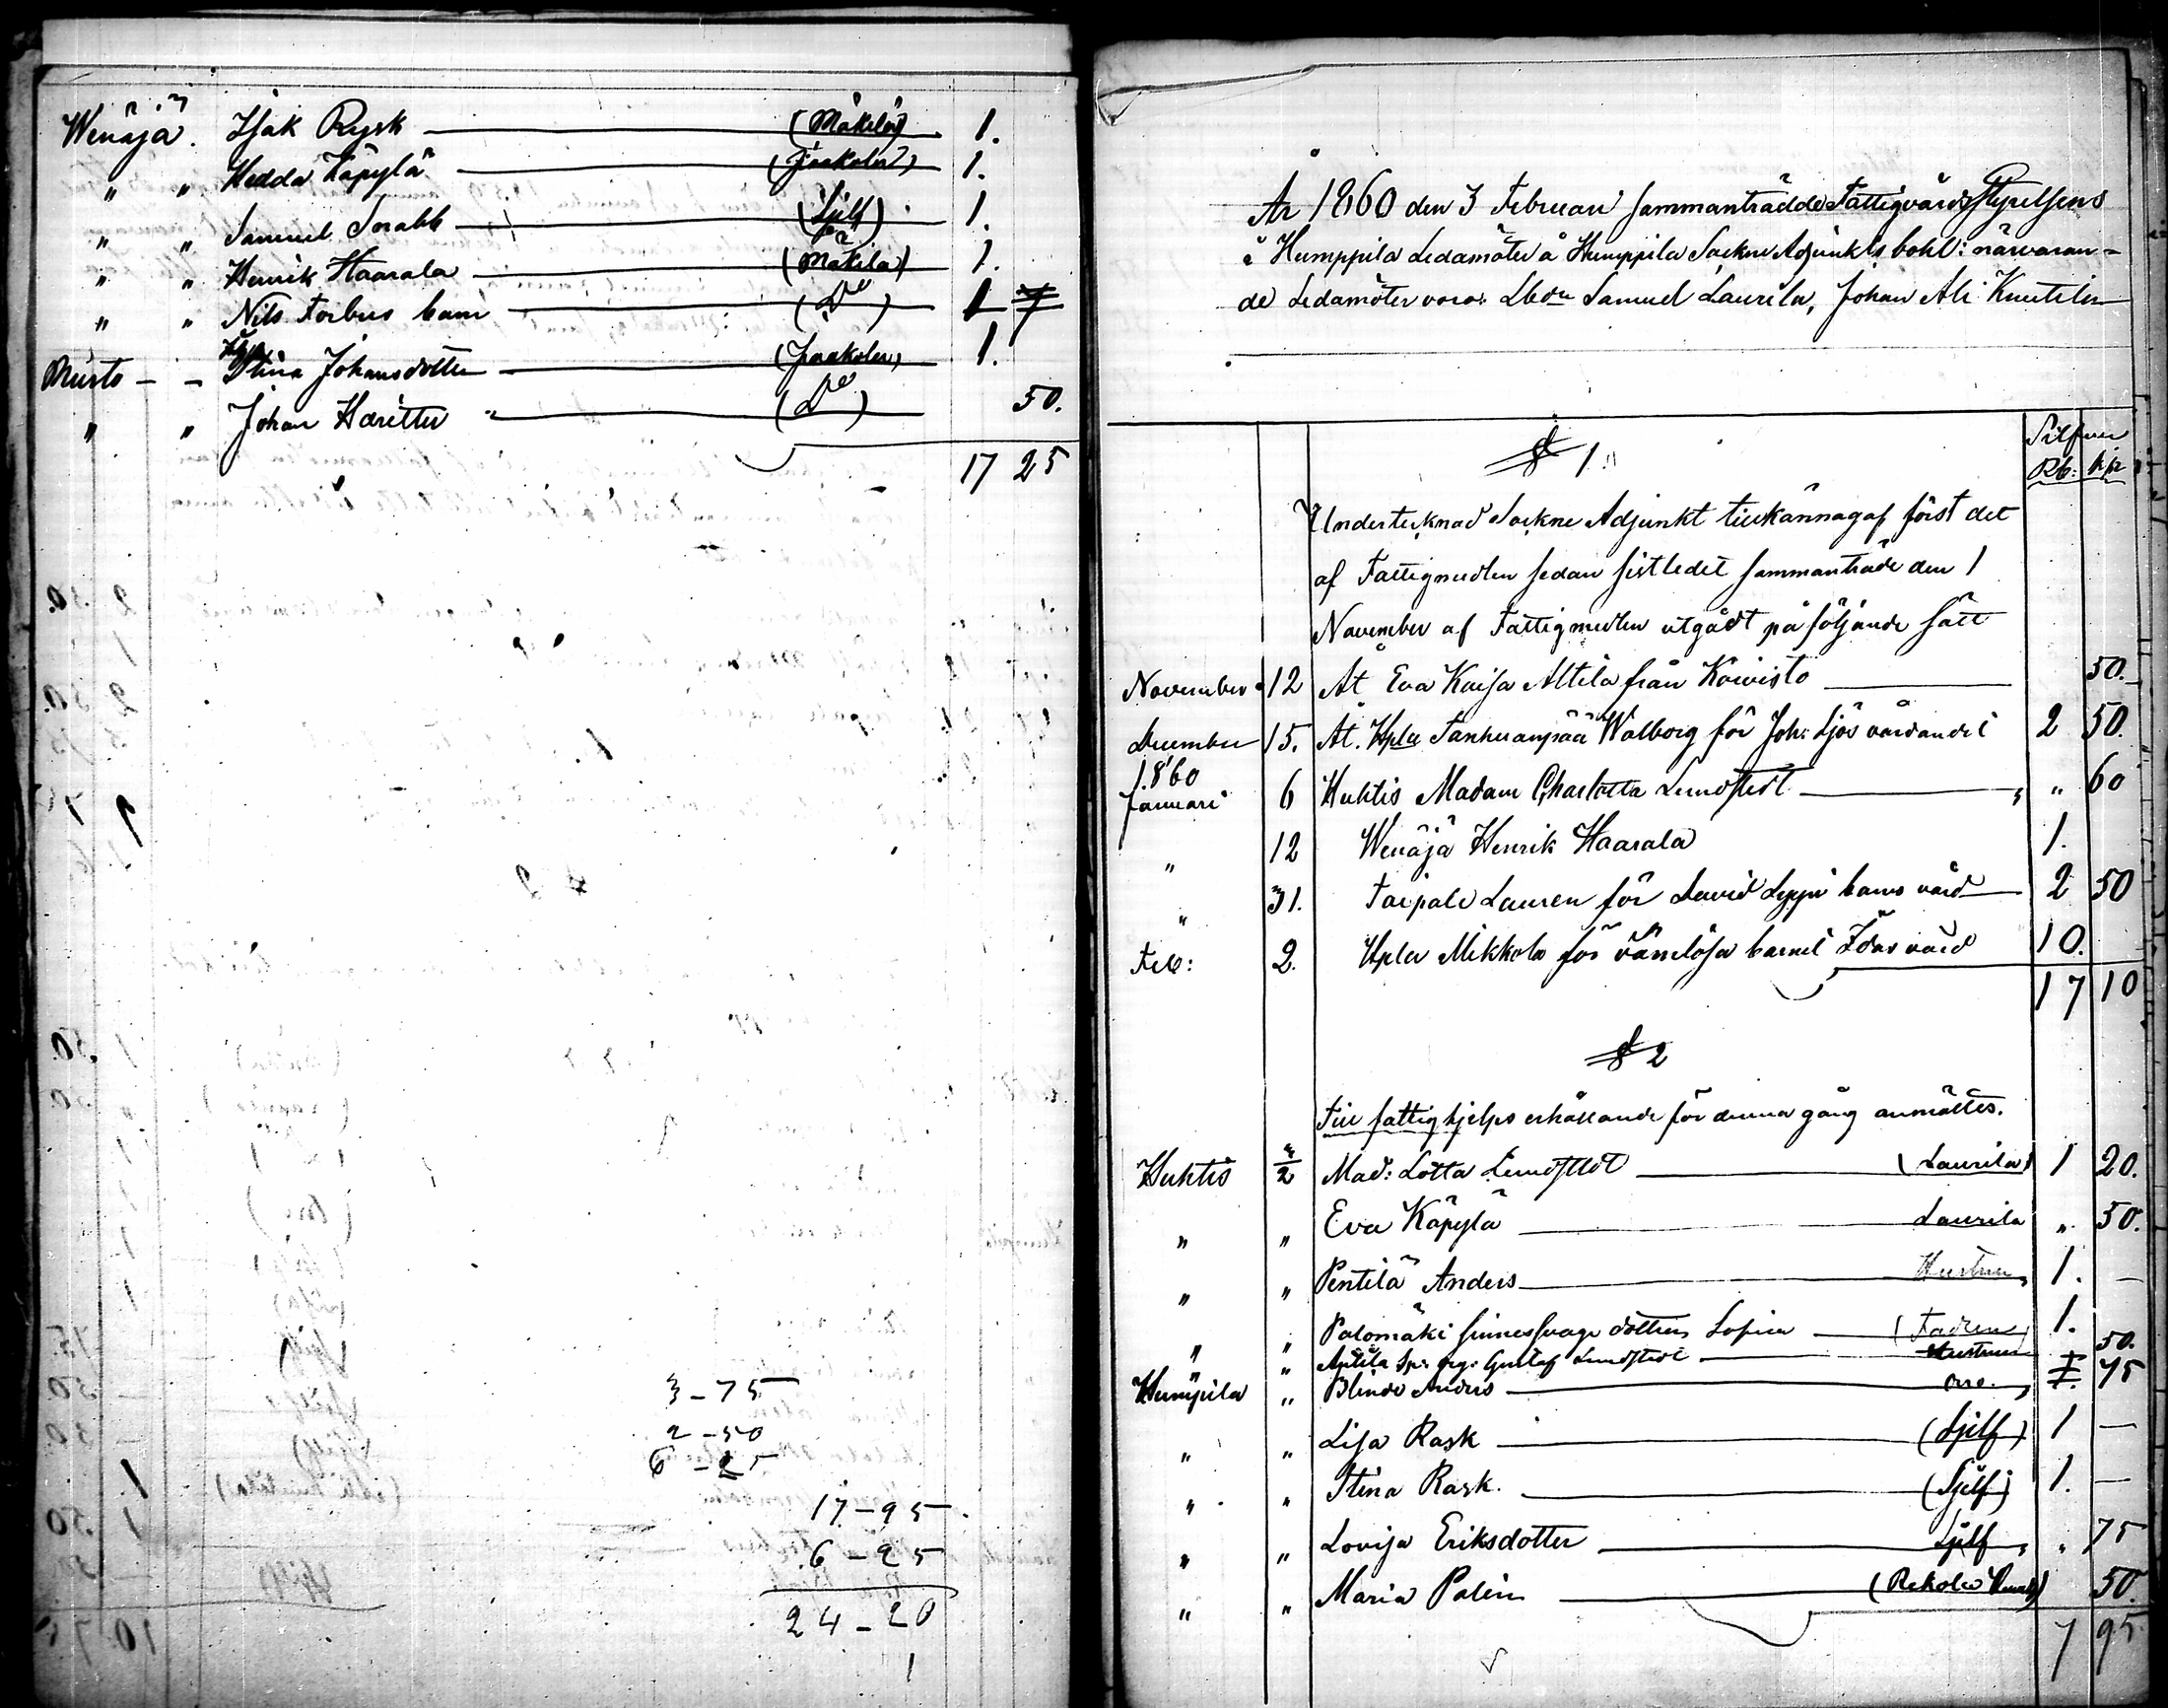 Wenäjä. Isak Rysk (Mäkilä) 1.
" " Hedda Käpylä (Jaakola) 1.
" " Samuel Snabb (Sjelf) 1.
" " Henrik Haarala (Mäkilä) 1.
" " Nils Forbus barn (Do)
Murto - - Stina Johansdotter (Jaakola) 1.
" " Johan Haritter (Do) 50.
17 25
3-75
2-50
6-25
17-95
6-25
24-20
1
År 1860 den 3 Februari sammanträdde Fattigvårds Styrelsens
i Humppila Ledamöter å Humppila Sockne Adjunkts bohl: närvaran-
de Ledamöter voro: Samuel Laurila, Johan Ali Knuutila
Silfver
§ 1. Rb: kp
Undertecknad Sockne Adjunkt tillkännagaf först det
af Fattigmedlen sedan sistledet sammanträde den 1
November af Fattigmedlen utgådt på följande sätt
November 12 Åt Eva Kaisa Attila från Koivisto 50.
December 15. Åt. Hpla Tanhuanpää Walborg för Joh: Sjös vårdande 2 50.
1860
Januari 6 Huhtis Madam Charlotta Lundstedt " 60
" 12 Wenäjä Henrik Haarala 1.
" 31. Taipale Lauren för David Leppi barns vård 2 50
Feb: 2. Hpla Mikkola för vänlösa barnet Idas vård 10.
17 10
§ 2
Till fattighjelps erhållande för denna gång anmältes.
Huhtis 3/2 Mad: Lotta Lundstedt (Laurila) 1 20.
" " Eva Käpylä Laurila " 50.
" " Pentilä Anders Hustrun 1. —
" " Palomäki sinnessvaga dottern Sofia (Fadren) 1.
" Gustaf Lundstedt Hustrun 50.
Humpila " Blinde Anders 75
" " Lisa Rask (Sjelf) 1 —
" " Stina Rask. (Sjelf) 1. —
" " Lovisa Eriksdotter Sjelf " 75
" " Maria Palin (Rekola 50.
7 95.